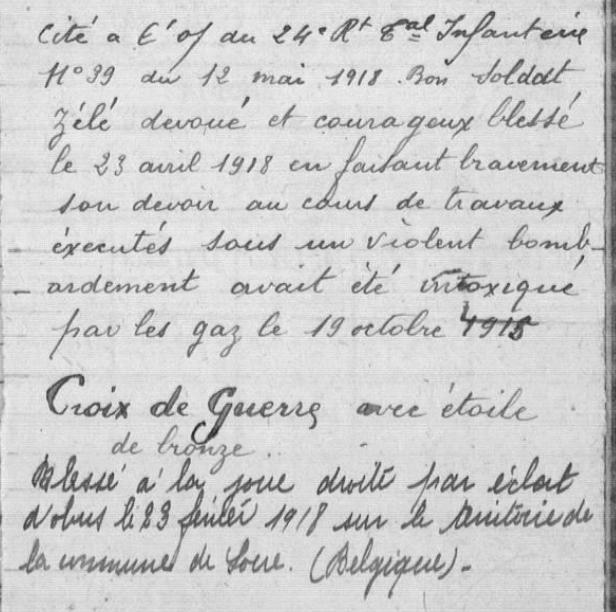 Cité a l'of du 24e Rt Tal Infanterie
No 39 du 12 mai 1918. Bon Soldat
Zélé devoué et courageux blessé
le 23 avril 1918 en faisant bravement
son devoir au cours de travaux
éxecutés sous un violent bomb-
- ardement avait été intoxiqué
par les gaz le 19 octobre 1915
Croix de Guerre avec étoile
de bronze.
Blessé à la joue droite par éclat
d'obus le 23 février 1918 sur le territoire de
la commune de (Belgique).-